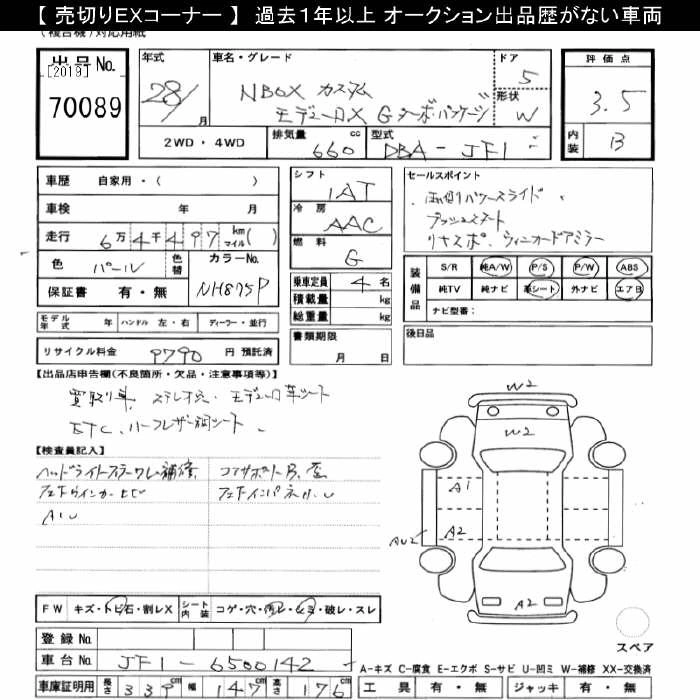 【 売切りEXコーナー 】 過去1年以上 オークション出品歴がない車両
(複合機)対応用紙
出品No.
[2019]
70089
年式
28/
月
車名・グレード
NBOX カスタム
モデューロX Gターボパッケージ
ドア
5
形状
W
評価点
3.5
内装
B
2WD・4WD
排気量
660
cc
型式
DBA-JF1
車歴 自家用・( )
車検 年 月
走行 6万4千497km マイル( )
色 パール 色替 カラーNo. NH875P
保証書 有・無
モデル年式 年 ハンドル 左・右 ディーラー・並行
リサイクル料金 9790 円 預託済
シフト
1AT
冷房
AAC
燃料
G
乗車定員 4 名
積載量 kg
総重量 kg
書類期限
月 日
セールスポイント
両側パワースライド
プッシュスタート
リヤスポ、ウィンカードアミラー
装備品
S/R 純A/W P/S P/W ABS
純TV 純ナビ 革シート 外ナビ エアB
ナビ型番:
後日品
【出品店申告欄(不良箇所・欠品・注意事項等)】
買取り車、ステレオ欠、モデューロ革シート
ETC、ハーフレザー調シート
【検査員記入】
ヘッドライトステーワレ補修
コアサポート
Fドウインカーヒビ
AU
W2
W2
A1
A2
AU2
A2
スペア
FW キズ・トビ石・割レX シート内装 コゲ・穴・汚レ・シミ・破レ・スレ
登録No.
車台No. JF1-6500142
車庫証明用 長さ 339 幅 147 高さ 176
A-キズ C-腐食 E-エクボ S-サビ U-凹ミ W-補修 XX-交換済
工具 有・無 ジャッキ 有・無